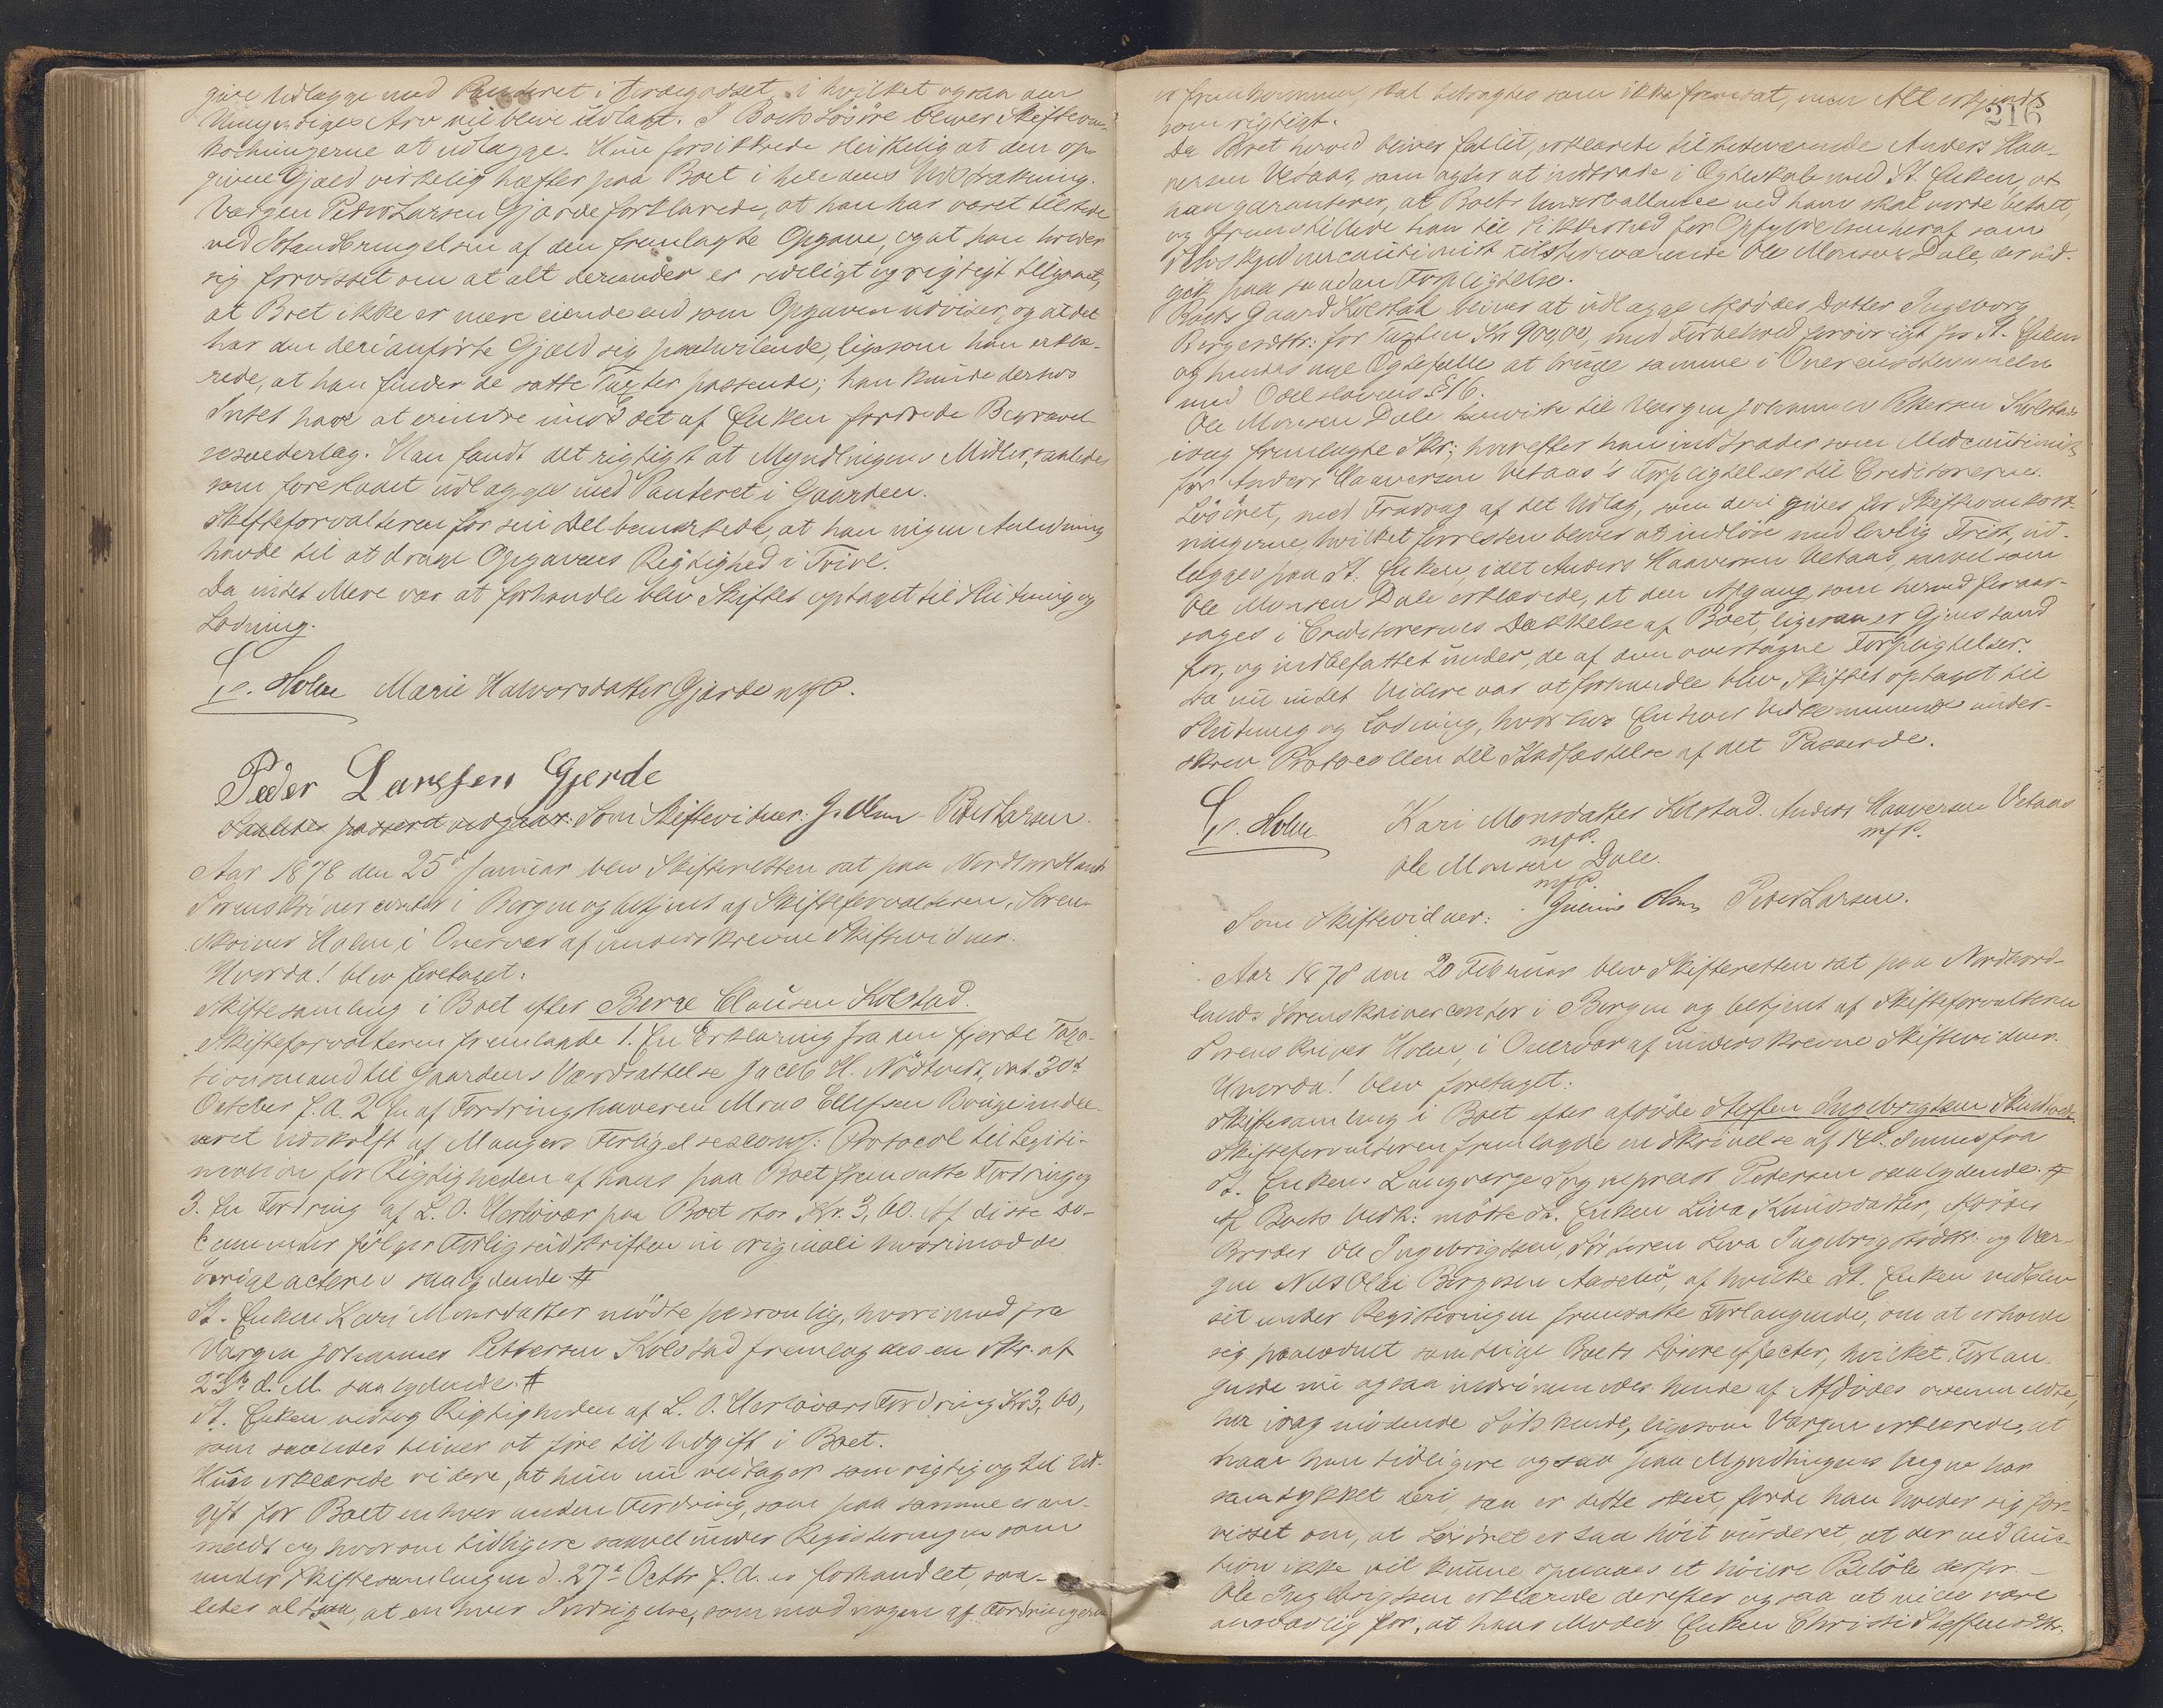 give Udlægge med Panteret i Jordegodset, i hvilket ogsaa den
Umyndiges Arv vil blive udlagt. I Boets Lösöre bliver Skifteom-
kostningerne at udlægge. Hun forsikkrede skikkelig at den op-
givne Gjæld virkelig hæfter paa Boet i hele dens Udstrækning.
Værgen Peder Larsen Gjærde forklarede, at han har været tilstede
ved Istandbringelsen af den fremlagte Opgave, og at han holder
sig forvisset om at alt derunder er redeligt og rigtigt tilgaaet,
at Boet ikke er mere eiende end som Opgaven udviser, og at det
har den deri anförte Gjæld sig paahvilende, ligesom han erklæ-
rede, at han finder de satte Taxter passende; han kunde derhos
Intet have at erindre imod det af Enken fordrede Begravel-
sesvederlag. Han fandt det rigtigt at Myndlingens Midler, saaledes
som forelaaet udlægges med Panteret i Gaarden.
Skifteforvalteren for sin Del bemærkede, at han ingen Anledning
havde til at drage Opgavens Rigtighed i Tvivl.
Da intet Mere var at forhandle blev Skiftet optaget til Slutning og
Lodning.
C. Holm Marie Halvorsdatter Gjærde mfP.
Peder Larssen Gjerde
Saaledes passeret vedgaar: Som Skiftevidner: G. Olsen Peter Larsen.
Aar 1878 den 25de Januar blev Skifteretten sat paa Nordhordlands
Sorenskrivercontor i Bergen og betjent af Skifteforvalteren, Soren-
skriver Holm i Overvær af underskrevne Skiftevidner.
Hvorda! blev foretaget:
Skiftesamling i Boet efter Berge Clausen Kolstad.
Skifteforvalteren fremlagde 1. En Erklæring fra den fjerde Taxa-
tionsmand til Gaardens Værdsættelse Jacob H. Nödtvedt, dat. 30te
October f. A. 2 En af Fordringshaveren Mons Ellefsen Bouge indle-
veret Udskrift af Mangers Forligelsescomss: Protocol til Legiti-
mation for Rigtigheden af hans paa Boet fremsatte Fordring og
3. En Fordring af L. O. Herlövær paa Boet stor Kr. 3,60. Af disse Do-
cumenter fölger Forligsudskriften in originali hvorimod de
övrige acteres saalydende #
St. Enken Kari Monsdatter mödte personlig, hvorimod fra
Værgen Johannes Pettersen Kolstad fremlagdes en Skr. af
23de d. M. saalydende #
St. Enken vedtog Rigtigheden af L. O. Herlöværs Fordring Kr 3,60,
som saaledes bliver at före til Udgift i Boet.
Hun erklærede videre, at hun nu vedtager som rigtig og til Ud-
gift for Boet enhver anden Fordring, som paa samme er an-
meldt og hvorom tidligere saavel under Registreringen som
under Skiftesamlingen d. 27de Octbr f. A. er forhandlet, saa-
ledes altsaa, at enhver Indsigelse, som mod nogen af Fordringerne
216
er fremkommen, skal betragtes som ikke fremsat, men Alt erkjendt
som rigtigt.
Da Boet herved bliver fallit, erklærede tilstedeværende Anders Haa-
versen Vetaas, som agter at indtræde i Ægteskab med St. Enken, at
han garanterer, at Boets Underballance ved ham skal vorde betalt,
og fremstillede han til Sikkerhed for Opfyldelsen heraf som
Selvskyldnercautionist tilstedeværende Ole Monsen Dale, der ind-
gik paa saadan Forpligtelse.
Boets Gaard Kolstad bliver at udlægge Afdödes Datter Ingeborg
Bergesdtr: for Taxten Kr 900,00, med Forbehold forövrigt for St. Enken
og hendes nye Ægtefælle at bruge samme i Overensstemmelse
med Odelslovens § 16.
Ole Monsen Dale henviste til Værgen Johannes Pettersen Kolstads
idag fremlagte Skr; hvorefter han indtræder som Medcautionist
for Anders Haaversen Vetaas's Forpligtelser til Creditorerne.
Lösöret, med Fradrag af det Udlag, som deri gives for Skifteomkost-
ningerne, hvilket forresten bliver at indlöse med lovlig Frist, ud-
lægges paa St. Enken, idet Anders Haaversen Vetaas, saavel som
Ole Monsen Dale erklærede, at den Afgang, som herved foraar-
sages i Creditorernes Dækkelse af Boet, ligesaa er Gjenstand
for, og indbefattet under, de af dem overtagne Forpligtelser.
Da nu intet Videre var at forhandle blev Skiftet optaget til
Slutning og Lodning, hvorhos Enhver Vedkommende under-
skrev Protocollen til Stadfæstelse af det Passerede.
C. Holm Kari Monsdatter Kolstad. Anders Haaversen Vetaas
mfP. mfP.
Ole Monsen Dale.
mfP.
Som Skiftevidner: Olsen Peter Larsen.
Aar 1878 den 20 Februar blev Skifteretten sat paa Nordhord-
lands Sorenskrivercontor i Bergen og betjent af Skifteforvalteren
Sorenskriver Holm, i Overvær af underskrevne Skiftevidner.
Hvorda! blev foretaget:
Skiftesamling i Boet efter afdöde Steffen Ingebrigtsen
Skifteforvalteren fremlagde en Skrivelse af 14d. dennes fra
St. Enkens Laugværge Sogneprest Petersen saalydende #
Af Boets Vedk: mötte St. Enken Liva Knudsdatter, Afdödes
Broder Ole Ingebrigtsen, Sösteren Liva Ingebrigtsdtr: og Vær-
gen Nils Olai Börgesen Aaseby, af hvilke St. Enken vedblev
sit under Registreringen fremsatte Forlangende, om at erholde
sig paaloddet samtlige Boets Lösöreeffecter, hvilket Forlan-
gende nu ogsaa indrömmedes hende af Afdödes ovenmeldte,
her idag mödende Södskende, ligesom Værgen erklærede, at
naar han tidligere ogsaa paa Myndlingens Vegne har
samtykket deri, saa er dette skeet, fordi han holder sig for-
visset om, at Lösöret er saa höit vurderet, at der ved Auc-
tion ikke vil kunne opnaaes et höiere Belöb derfor. –
Ole Ingebrigtsen erklærede derefter ogsaa at ville være
ansvarlig for, at hans Moder Enken Christi Steffensdtr.